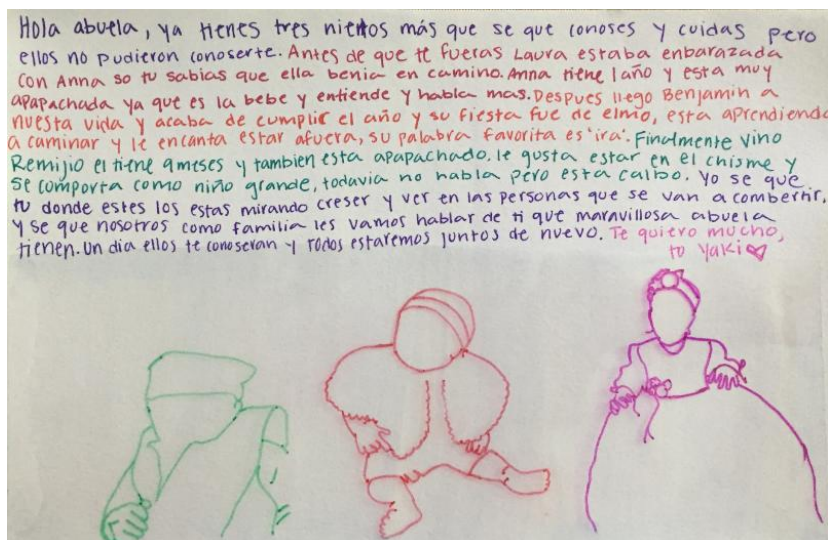 Hola abuela, ya tienes tres nietos más que se que conoses y cuidas pero
ellos no pudieron conoserte. Antes de que te fueras Laura estaba enbarazada
con Anna so tu sabias que ella benia en camino. Anna tiene 1 año y esta muy
apapachada ya que es la bebe y entiende y habla mas. Despues llego Benjamin a
nuesta vida y acaba de cumplir el año y su fiesta fue de elmo, esta aprendiendo
a caminar y le encanta estar afuera, su palabra favorita es 'ira'. Finalmente vino
Remijio el tiene 9 meses y tambien esta apapachado. le gusta estar en el chisme y
se comporta como niño grande, todavia no habla pero esta calbo. Yo se que
tu donde estes los estas mirando creser y ver en las personas que se van a combertir,
y se que nosotros como familia les vamos hablar de ti que maravillosa abuela
tienen. Un dia ellos te conoseran y todos estaremos juntos de nuevo. Te quiero mucho,
tu Yaki